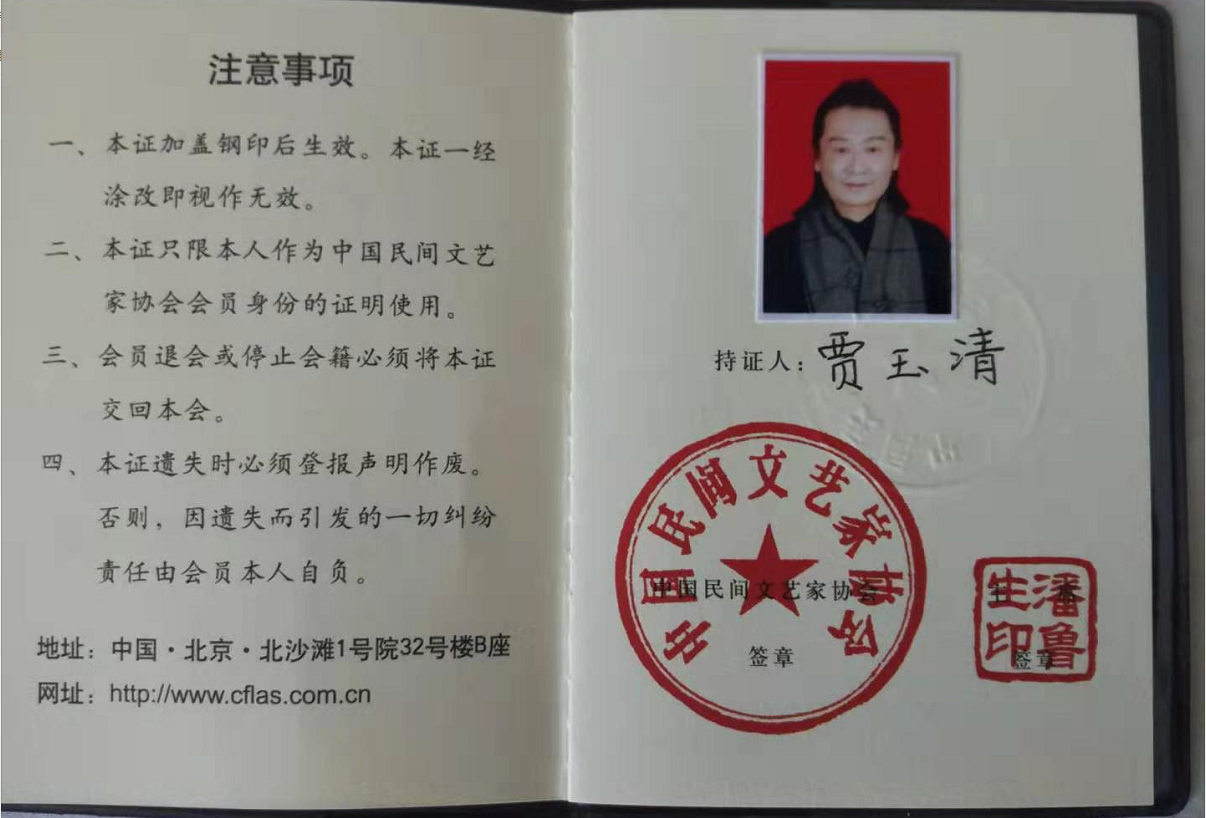 注意事项
一、本证加盖钢印后生效。本证一经
涂改即视作无效。
二、本证只限本人作为中国民间文艺
家协会会员身份的证明使用。
三、会员退会或停止会籍必须将本证
交回本会。
四、本证遗失时必须登报声明作废。
否则，因遗失而引发的一切纠纷
责任由会员本人自负。
地址：中国·北京·北沙滩1号院32号楼B座
网址：http://www.cflas.com.cn
持证人：贾玉清
中国民间文艺家协会
中国民间文艺家协会
签章
潘鲁生印
签章